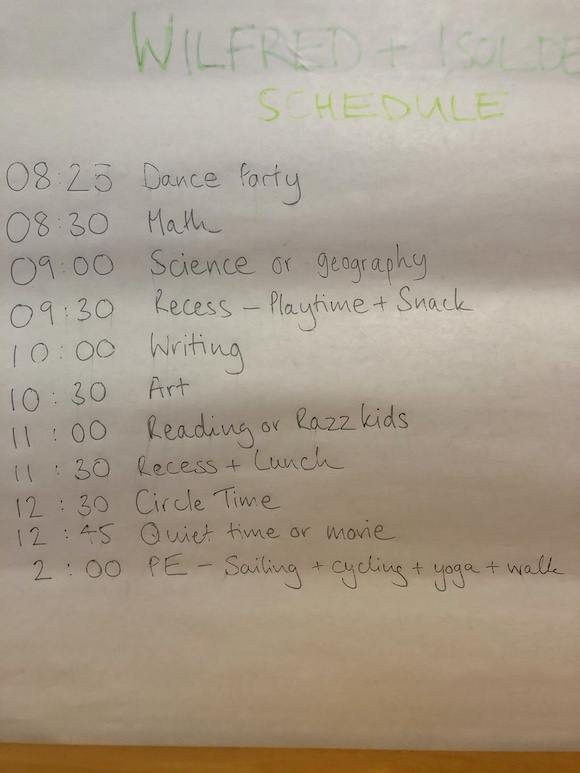 WILFRED + ISOLDE
SCHEDULE
08:25 Dance Party
08:30 Math
09:00 Science or geography
09:30 Recess - Playtime + Snack
10:00 Writing
10:30 Art
11:00 Reading or Razzkids
11:30 Recess + Lunch
12:30 Circle Time
12:45 Quiet time or movie
2:00 PE - Sailing + cycling + yoga + walk